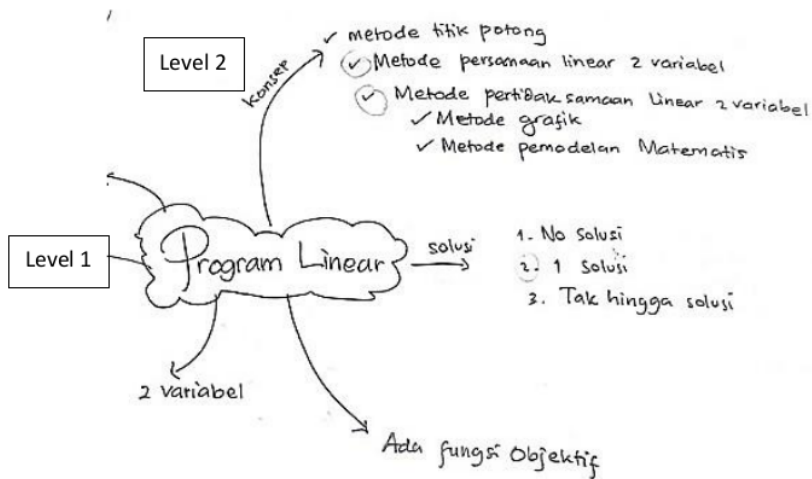 Level 2
konsep
✓ metode titik potong
✓ Metode persamaan linear 2 variabel
✓ Metode pertidaksamaan Linear 2 variabel
✓ Metode grafik
✓ Metode pemodelan Matematis
Level 1
Program Linear
solusi
1. No solusi
2. 1 solusi
3. Tak hingga solusi
2 variabel
Ada fungsi Objektif